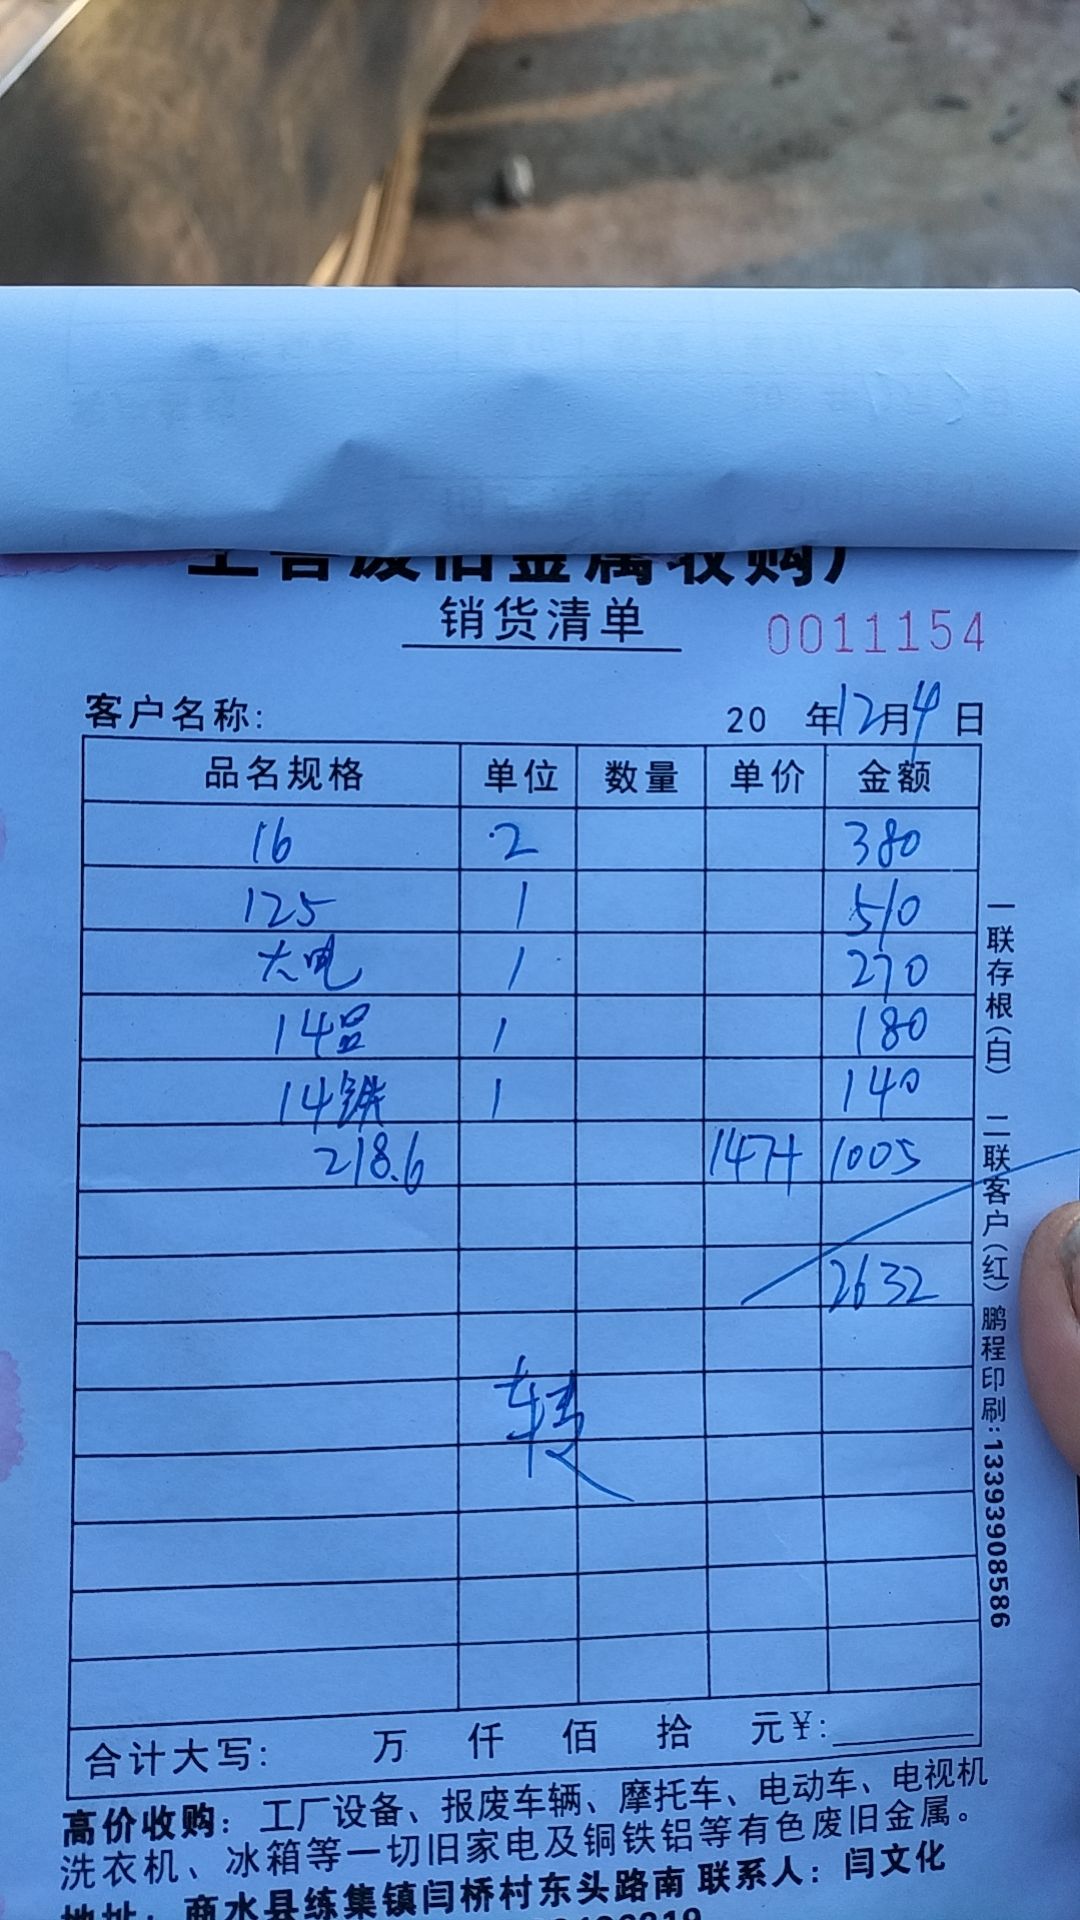 废旧金属收购厂
销货清单
0011154
客户名称: 20 年12月4日
品名规格 单位 数量 单价 金额
16 2 380
125 1 510
大电 1 270
14吕 1 180
14铁 1 140
218.6 147+ 1005
2632
转
合计大写: 万 仟 佰 拾 元¥:
高价收购: 工厂设备、报废车辆、摩托车、电动车、电视机
洗衣机、冰箱等一切旧家电及铜铁铝等有色废旧金属。
地址: 商水县练集镇闫桥村东头路南 联系人: 闫文化
一联存根(白) 二联客户(红) 鹏程印刷:13393908586